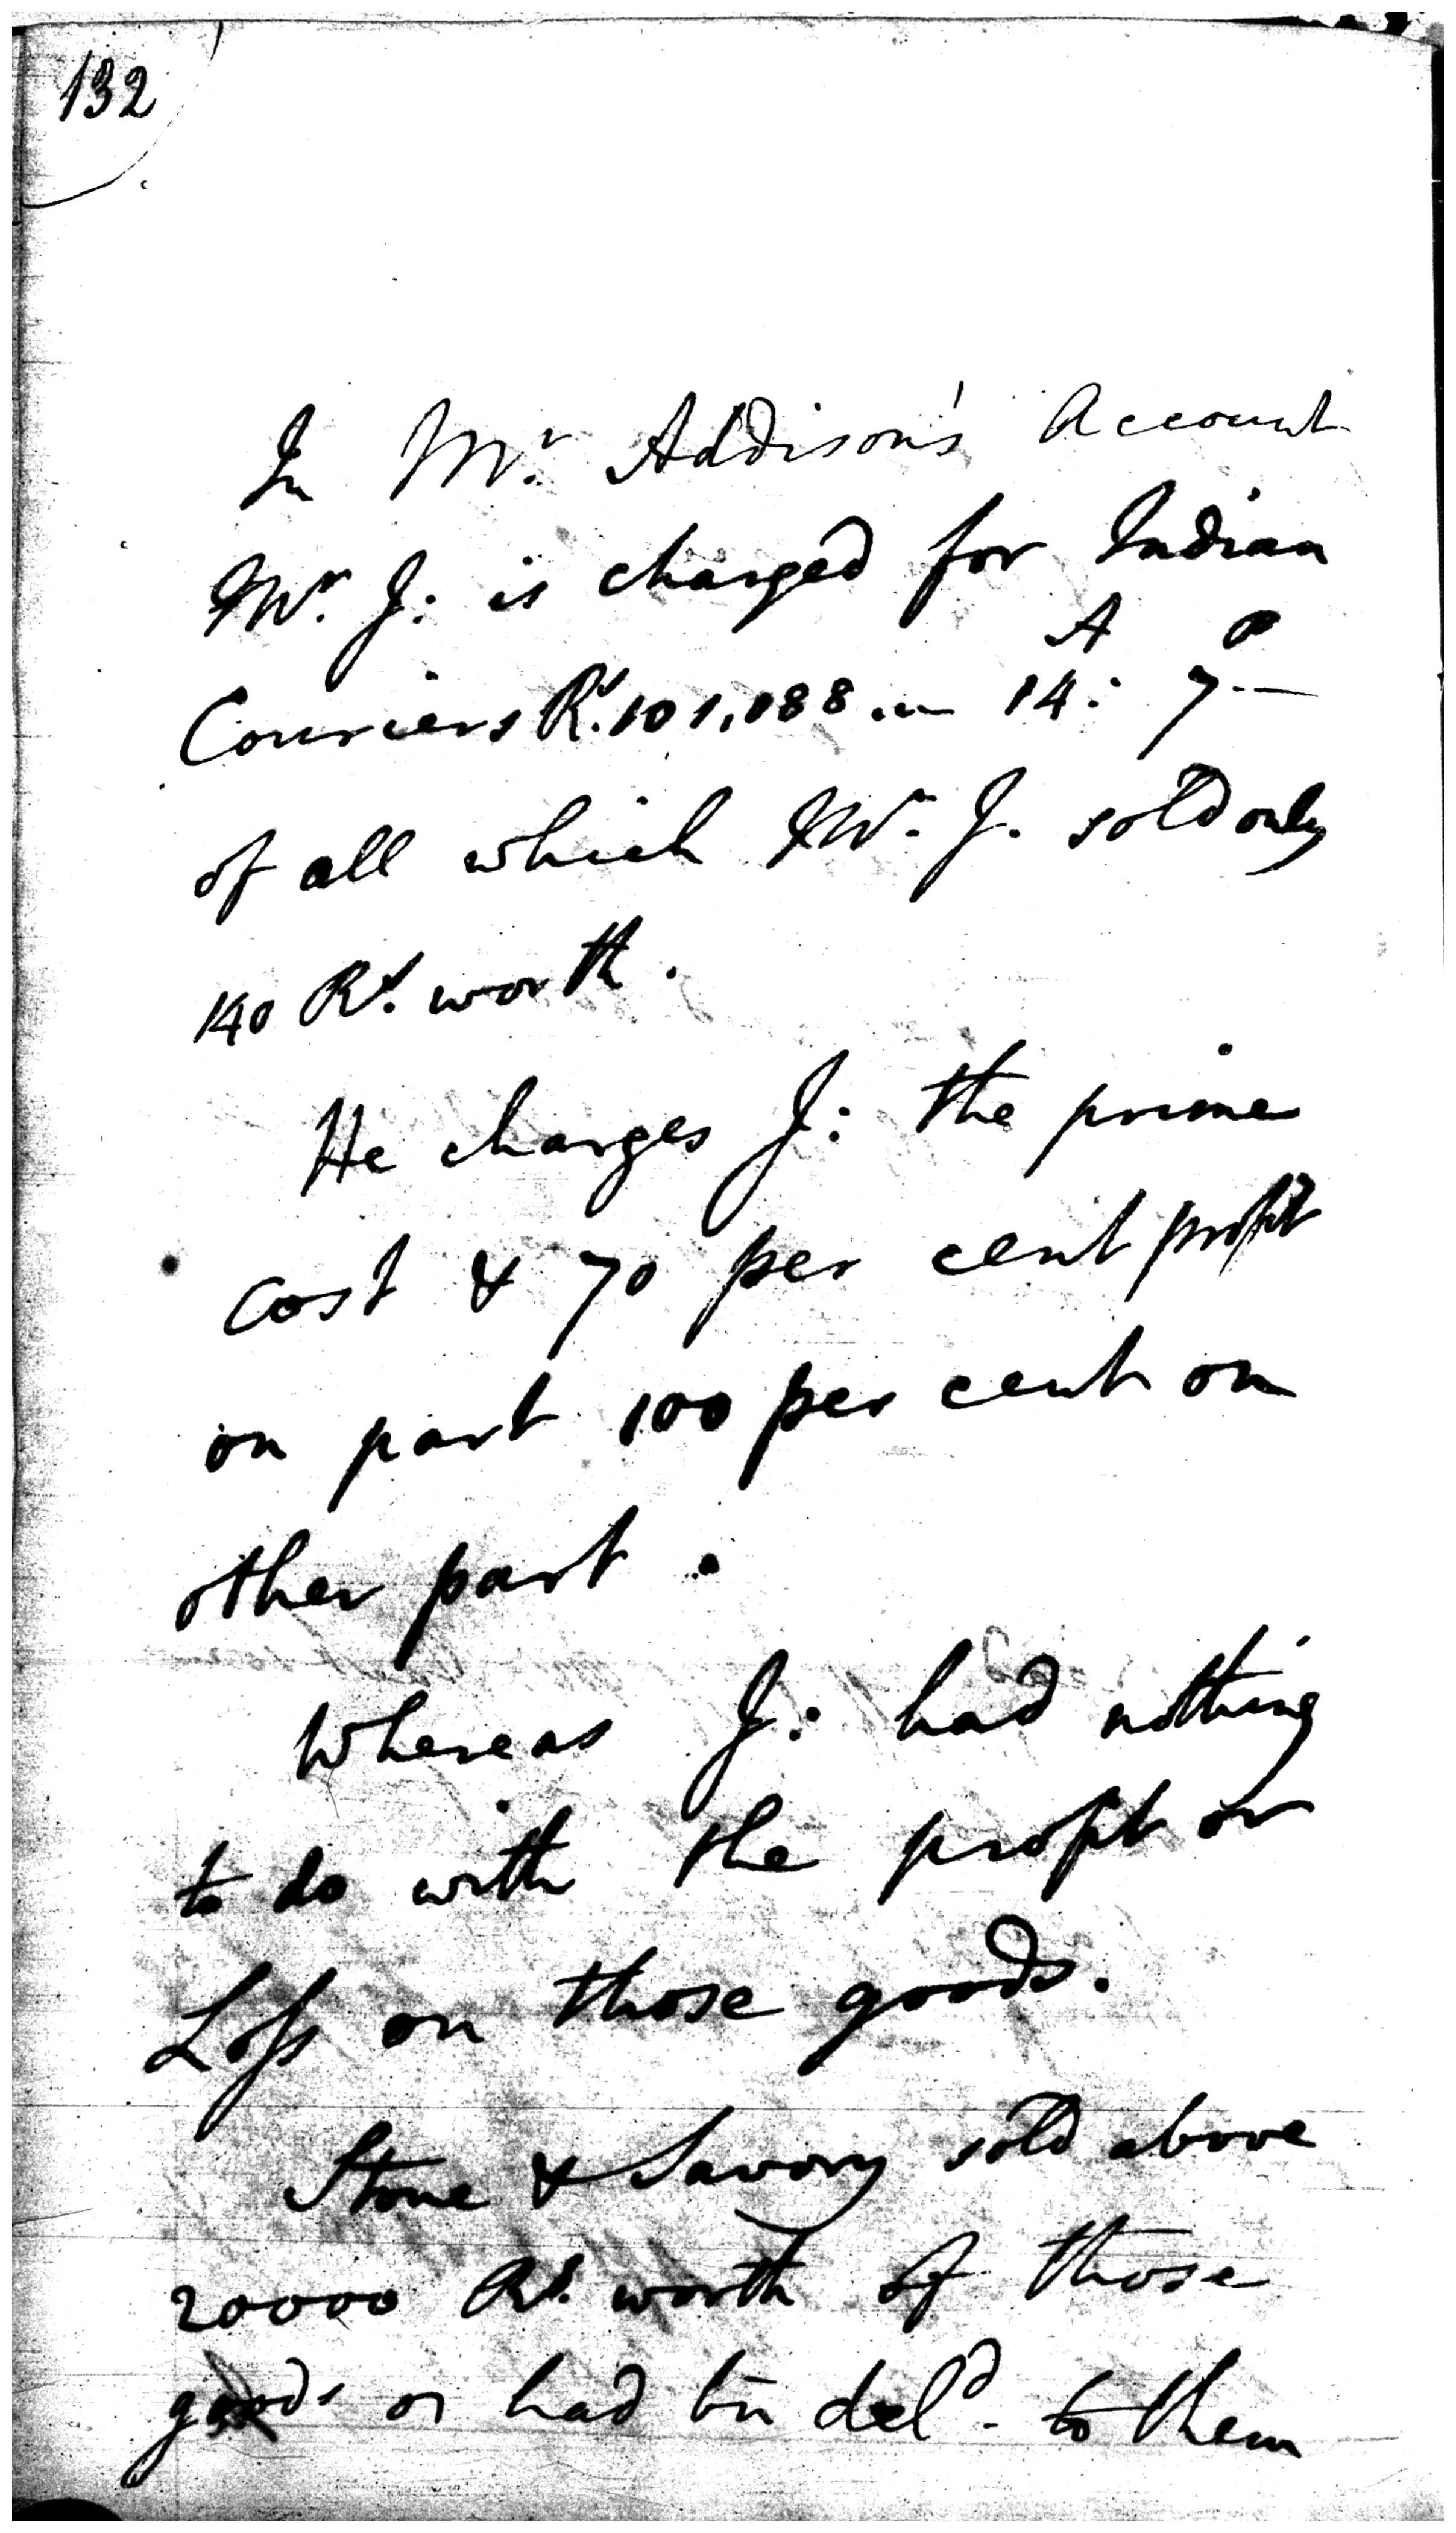 132
In Mr. Addison's Account
Mr. J: is charged for Indian
A P
Couriers Rs. 101,088 .. 14: 7.—
of all which Mr. J. sold only
140 Rs. worth.
He charges J: the prime
cost & 70 per cent profit
on part 100 per cent on
other part.
Whereas J: had nothing
to do with the profit or
Loss on those goods.
Stone & Savory sold above
20000 Rs. worth of those
goods or had bn deld. to them